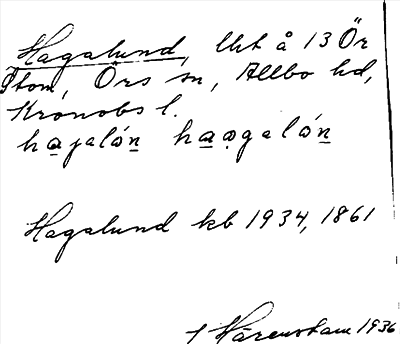 Hagalund, lht å 13 Ör
Stom, Örs sn, Allbo hd,
Kronobs l.
hajalón haogalón
Hagalund kb 1934, 1861
1936